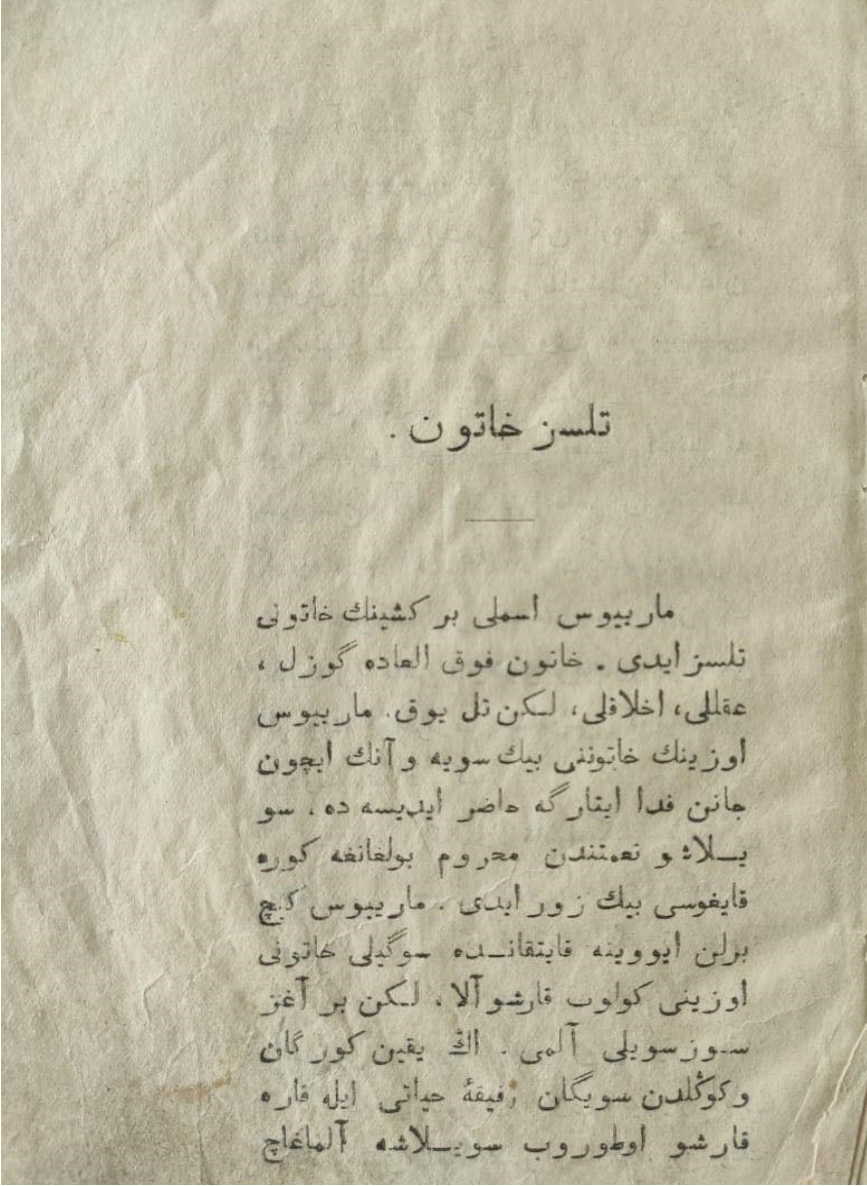 تلسز خاتون .
مارییوس اسملی بر كشینك خاتونی
تلسز ایدی . خاتون فوق العاده گوزل ،
عقللی، اخلاقلی، لكن تل یوق. مارییوس
اوزینك خاتوننی بیك سویه و آنك ایچون
جانن فدا ایتارگه حاضر ایدیسه ده ، سو
یــلاشو نعمتندن محروم بولغانغه كوره
قایغوسی بیك زور ایدی . مارییوس كیچ
برلن ایووینه قایتقانــده سوگیلی خاتونی
اوزینی كولوب قارشو آلا ، لـكن بر آغز
ســوز سویلی آلمی . اڭ یقین كورگان
و كوڭلدن سویگان رفیقهٔ حیاتی ایله قاره
قارشو اوطوروب سویــلاشه آلماغاچ